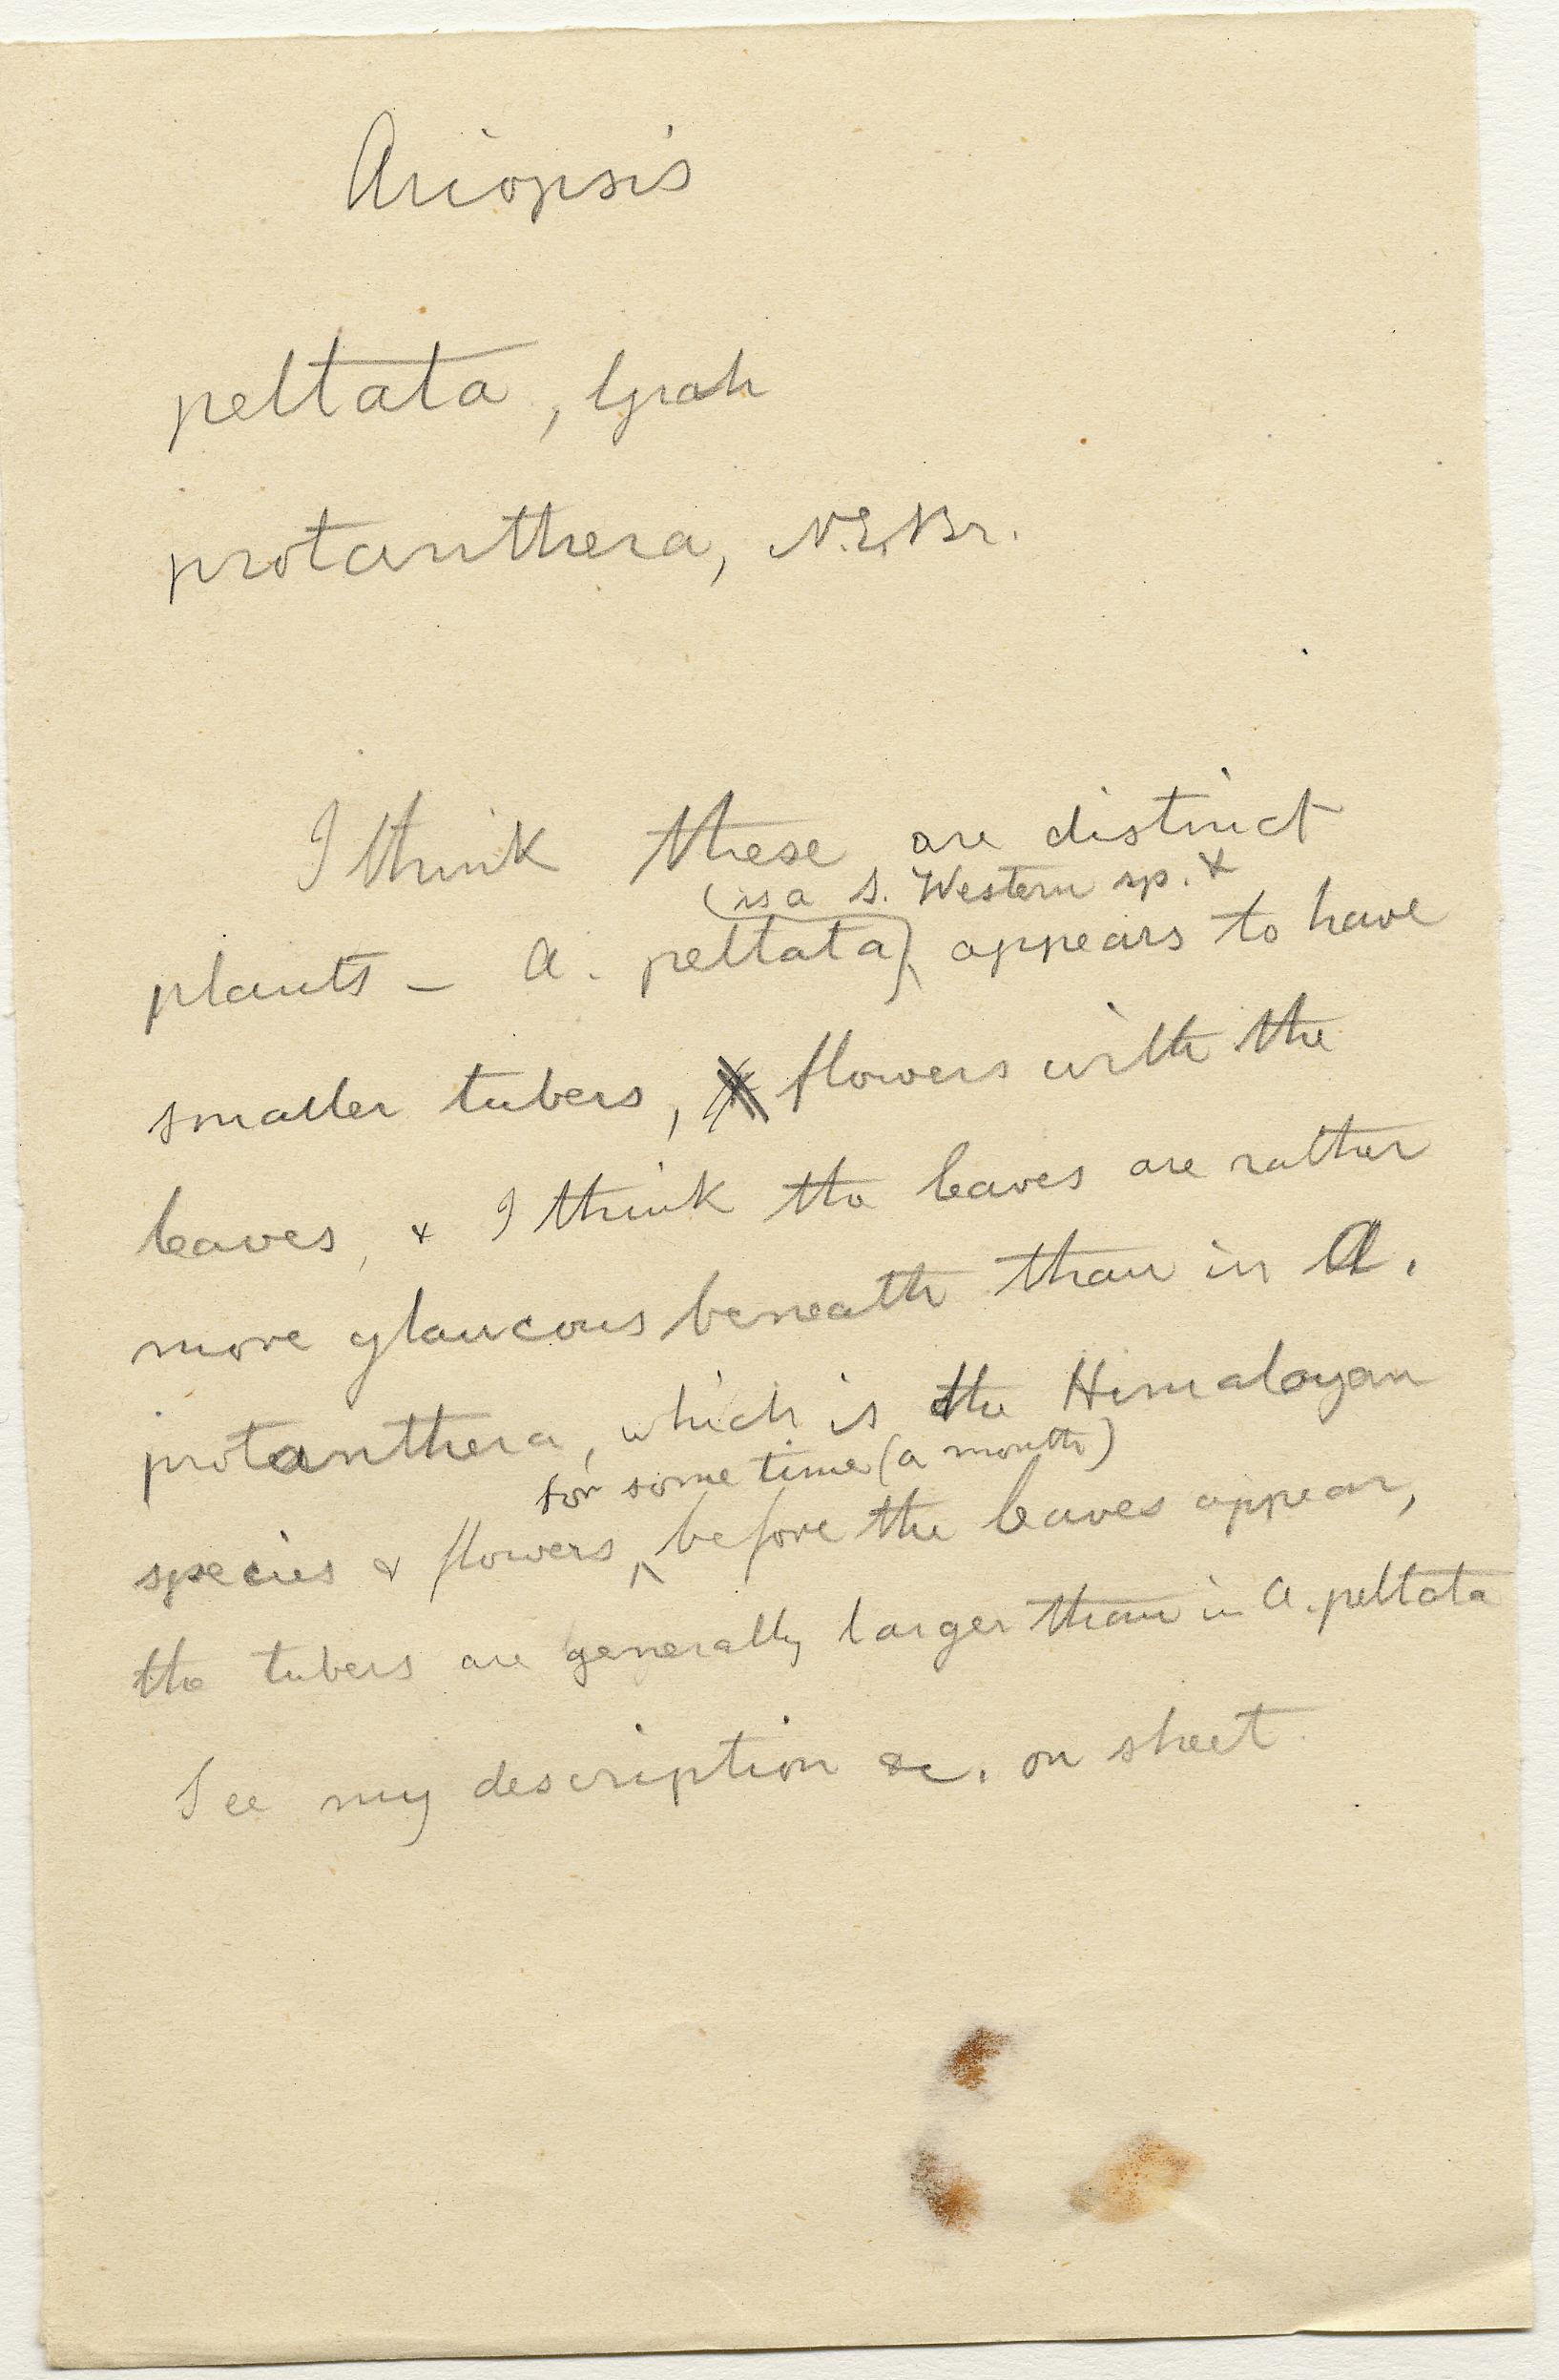 Ariopsis
peltata, Grah
protanthera, N.E.Br.
I think these are distinct
(is a S. Western sp. &
plants - A. peltata) appears to have
smaller tubers, flowers with the
leaves, & I think the leaves are rather
more glaucous beneath than in A.
protanthera, which is the Himalayan
for some time (a month)
species & flowers ^ before the leaves appear,
the tubers are generally larger than in A. peltata
See my description &c. on sheet.